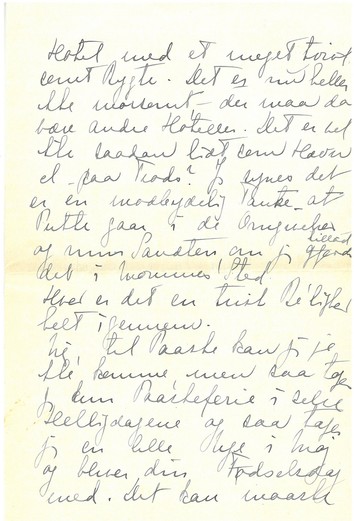 Hotel med et meget tvivl
somt Rygte. Det er nu heller
ikke morsomt – der maa da
være andre Hoteller. Det er vel
ikke saadan lidt som Haven
el – paa Trods? Jeg synes det
er en modbydelig Tanke – at
Putte gaar i de Omgivelser
og min Sandten om jeg tillod
det i Mommes' Sted
Hvor er det en trist
helt igennem.
Nej, til Paaske kan jeg je
ikke komme men saa tager
j kun Paaskeferie i selve
Helligdagene og saa tager
jeg en hel Uge i Maj
og bliver din Fødselsdag
med. Det kan maaske